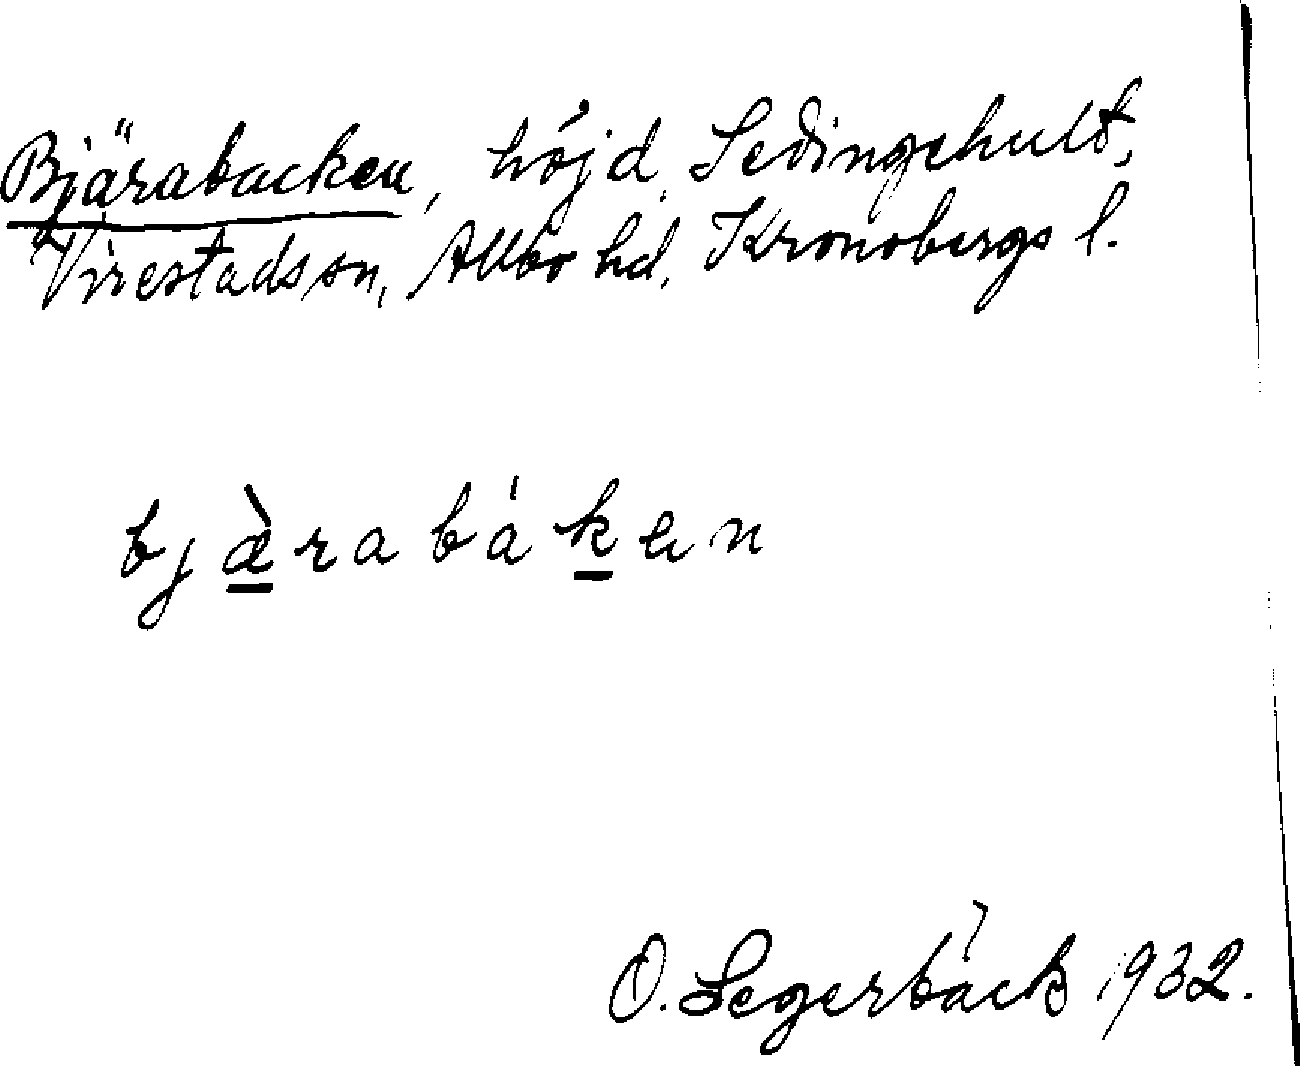 Bjärabacken, höjd, Sedingehult,
Virestads sn, Allbo hd, Kronobergs l.
bjæ̀rabáken
O. Segerbäck 1932.